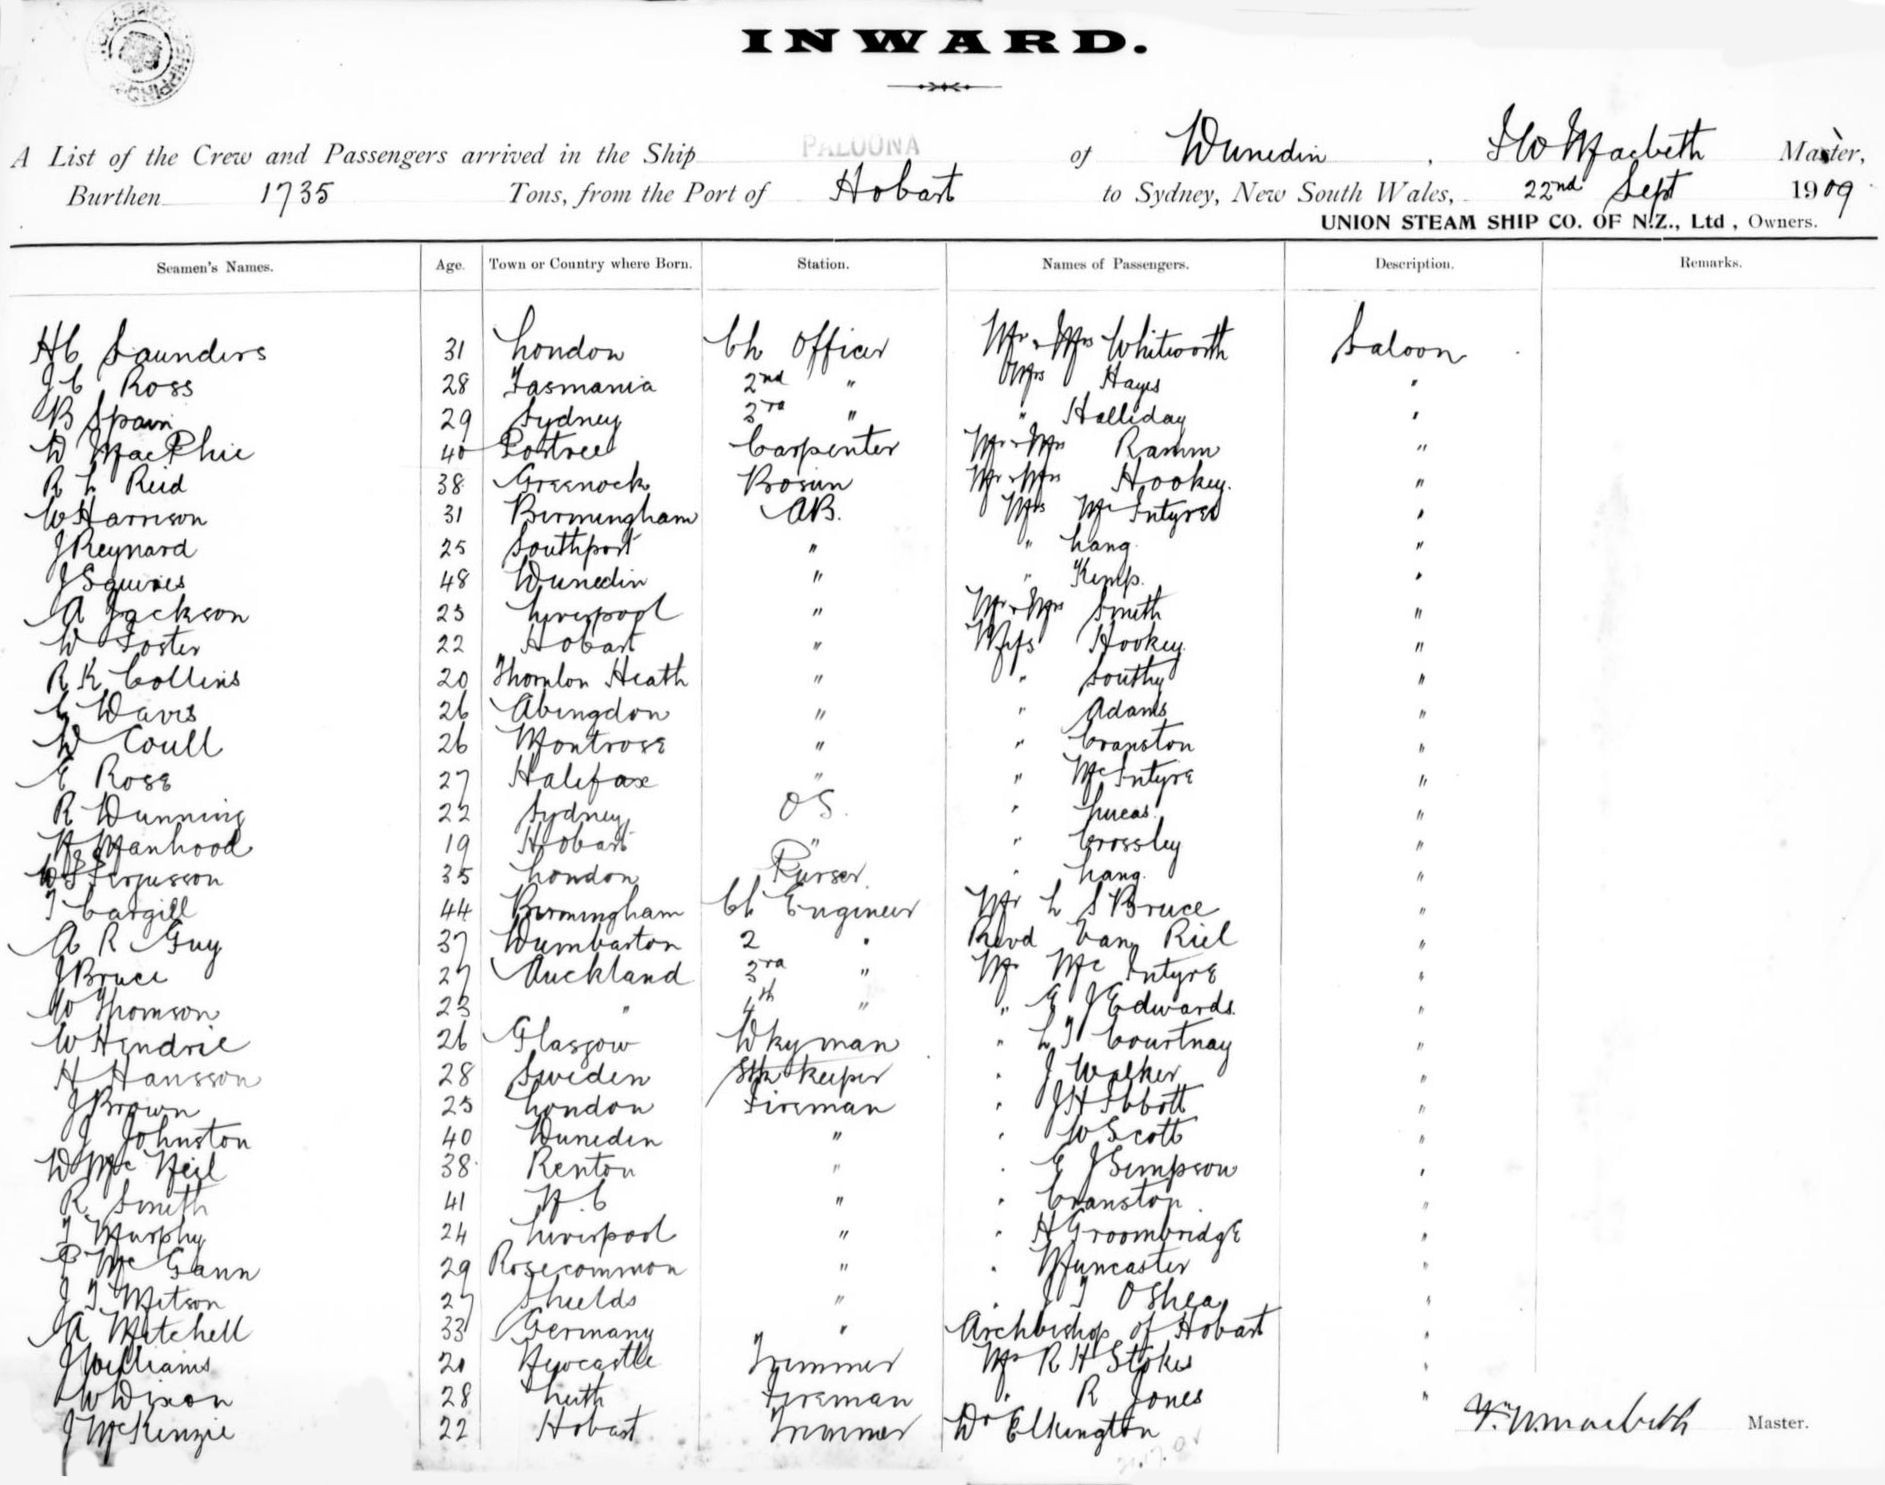 INWARD.
A List of the Crew and Passengers arrived in the Ship PALOONA of Dunedin, Master,
Burthen 1735 Tons, from the Port of Hobart to Sydney, New South Wales, 22nd Sept 1909
UNION STEAM SHIP CO. OF N.Z., Ltd, Owners.
Seamen's Names. Age. Town or Country where Born. Station. Names of Passengers. Description. Remarks.
H C Saunders 31 London Ch Officer Mr & Mrs Whitworth Saloon
J C Ross 28 Tasmania 2nd " Mrs Hayes "
B Spain 29 Sydney 3rd " " Halliday "
D MacPhie 40 Portree Carpenter Mr & Mrs Ramm "
R L Reid 38 Greenock Bosun Mr & Mrs Hookey. "
W Harrison 31 Birmingham AB. Mrs McIntyre "
J Reynard 25 Southport " " Lang "
J Squires 48 Dunedin " " Kemp. "
A Jackson 25 Liverpool " Mr & Mrs Smith "
W Foster 22 Hobart " Miss Hookey "
R K Collins 20 Thornton Heath " " Southy "
C Davis 26 Abingdon " " Adams "
W Coull 26 Montrose " " Cranston "
E Rose 27 Halifax " " McIntyre "
R Dunning 22 Sydney OS. " Lucas. "
H Manhood 19 Hobart " " Crossley "
W S Fergusson 35 London Purser. " Lang. "
T Cargill 44 Birmingham Ch Engineer Mr L S Bruce "
A R Guy 37 Dumbarton 2 " Revd Van Riel "
J Bruce 27 Auckland 3rd " Mr McIntyre "
W Thomson 23 " 4th " " E J Edwards. "
W Hendrie 26 Glasgow Dkyman " L T Courtnay "
H Hansson 28 Sweden Stk keeper " J Walker "
J Brown 25 London Fireman " J H Ibbott "
J Johnston 40 Dunedin " " W Scott "
D McNeil 38 Renton " " E J Simpson "
R Smith 41 N. C " " Cranston "
T Murphy 24 Liverpool " " H Groombridge "
P McGann 29 Rosecommon " " Muncaster "
J T Mitson 27 Shields " " J T OShea "
A Mitchell 33 Germany " Archbishop of Hobart "
J Williams 20 Newcastle Trimmer Mr R H Stokes "
W Dixon 28 Leith Fireman " R Jones "
J McKenzie 22 Hobart Trimmer Dr Elkington
Macbeth Master.